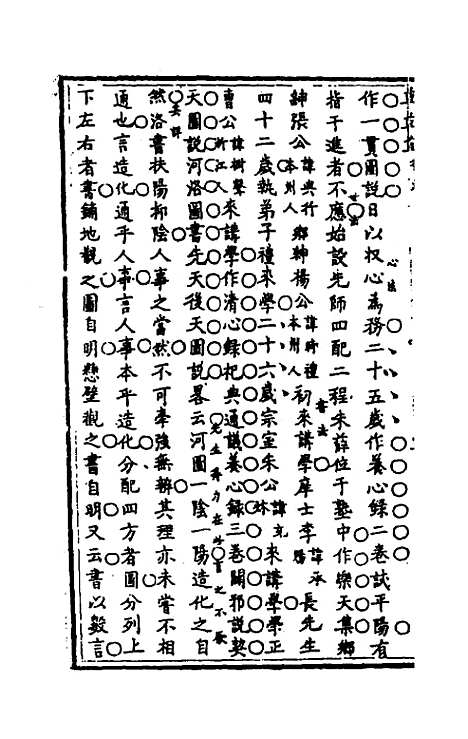 作一貫圖說日以收心為務二十五歲作養心錄二卷試平陽有
指于進者不應始設先師四配二程朱薛位于塾中作樂天集鄉
紳張公諱與行本州人鄉紳楊公諱時禮本州人初來講學庠士李諱承 長先生
四十二歲執弟子禮來學二十六歲宗室朱公諱充 來講學學正
曹公諱樹聲浙江人來講學作清心錄祀典通議養心錄三卷闢邪說契
天圖說河洛圖書先天後天圖說畧云河圖一陰一陽造化之自
然洛書扶陽抑陰人事之當然不可牽強無辨其理亦未嘗不相
通也言造化通乎人事言人事本乎造化分配四方者圖分列上
下左右者書鋪地觀之圖自明懸壁觀之書自明又云書以數言
心法
書法
先生得力在此言之不厭